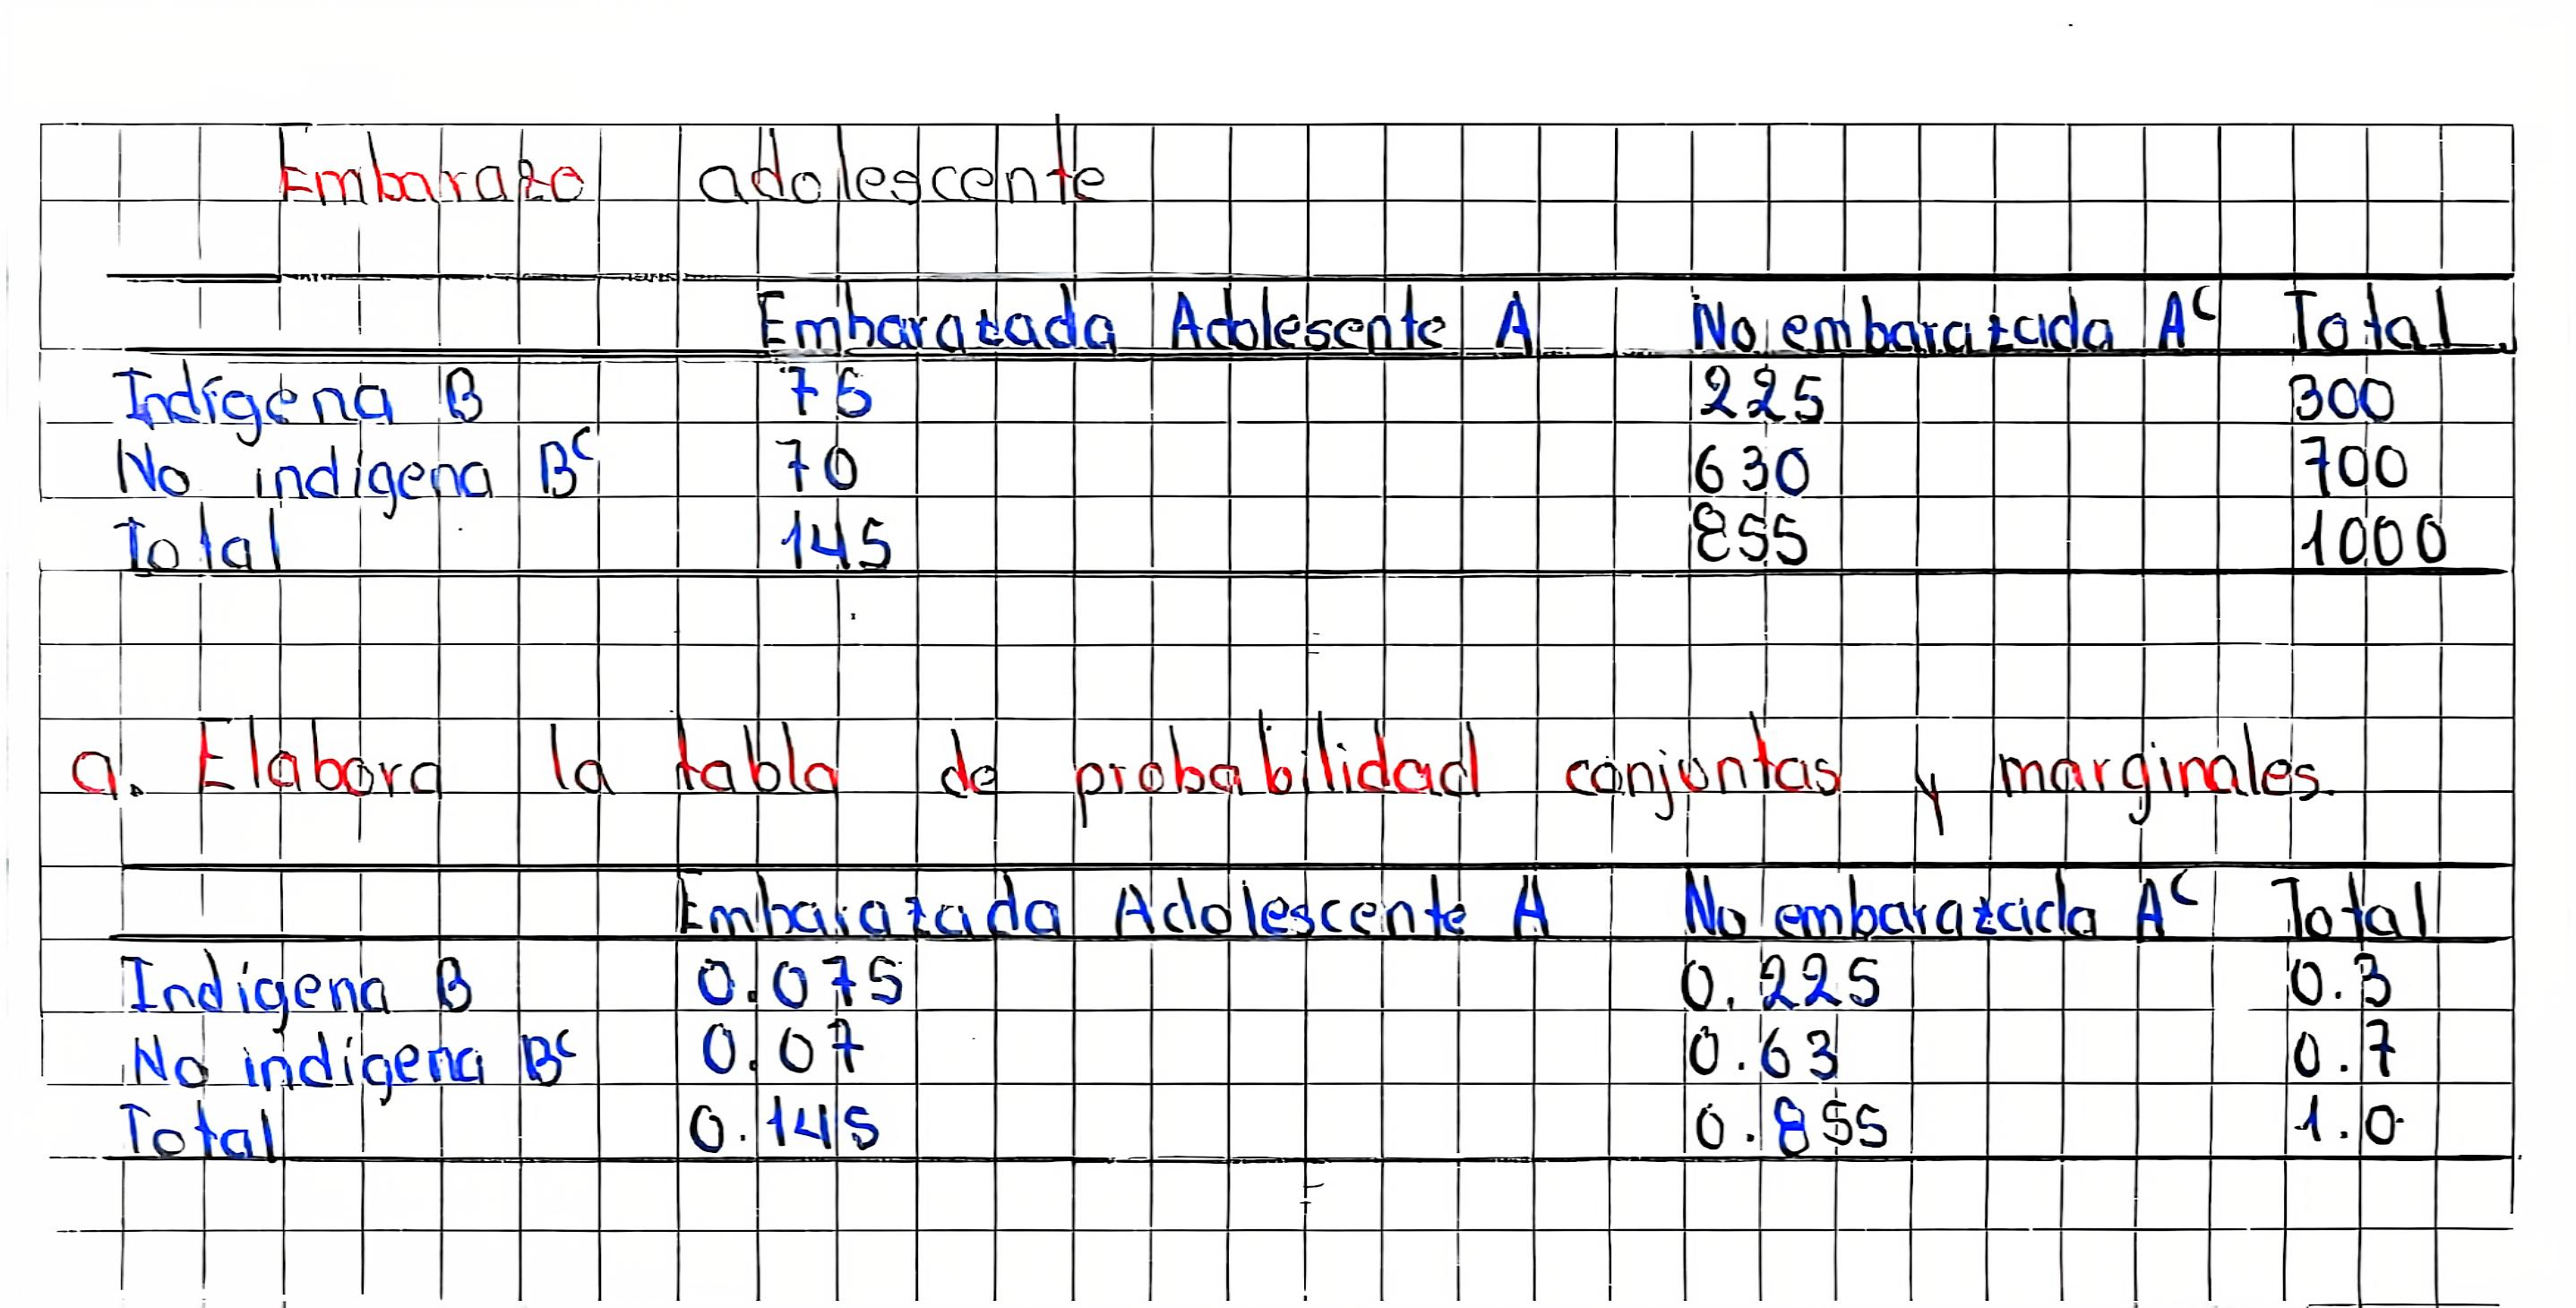 Embarazo adolescente
Embarazada Adolesente A No embarazada Aᶜ Total
Indígena B 75 225 300
No indígena Bᶜ 70 630 700
Total 145 855 1000
a. Elabora la tabla de probabilidad conjuntas y marginales.
Embarazada Adolescente A No embarazada Aᶜ Total
Indígena B 0.075 0.225 0.3
No indígena Bᶜ 0.07 0.63 0.7
Total 0.145 0.855 1.0